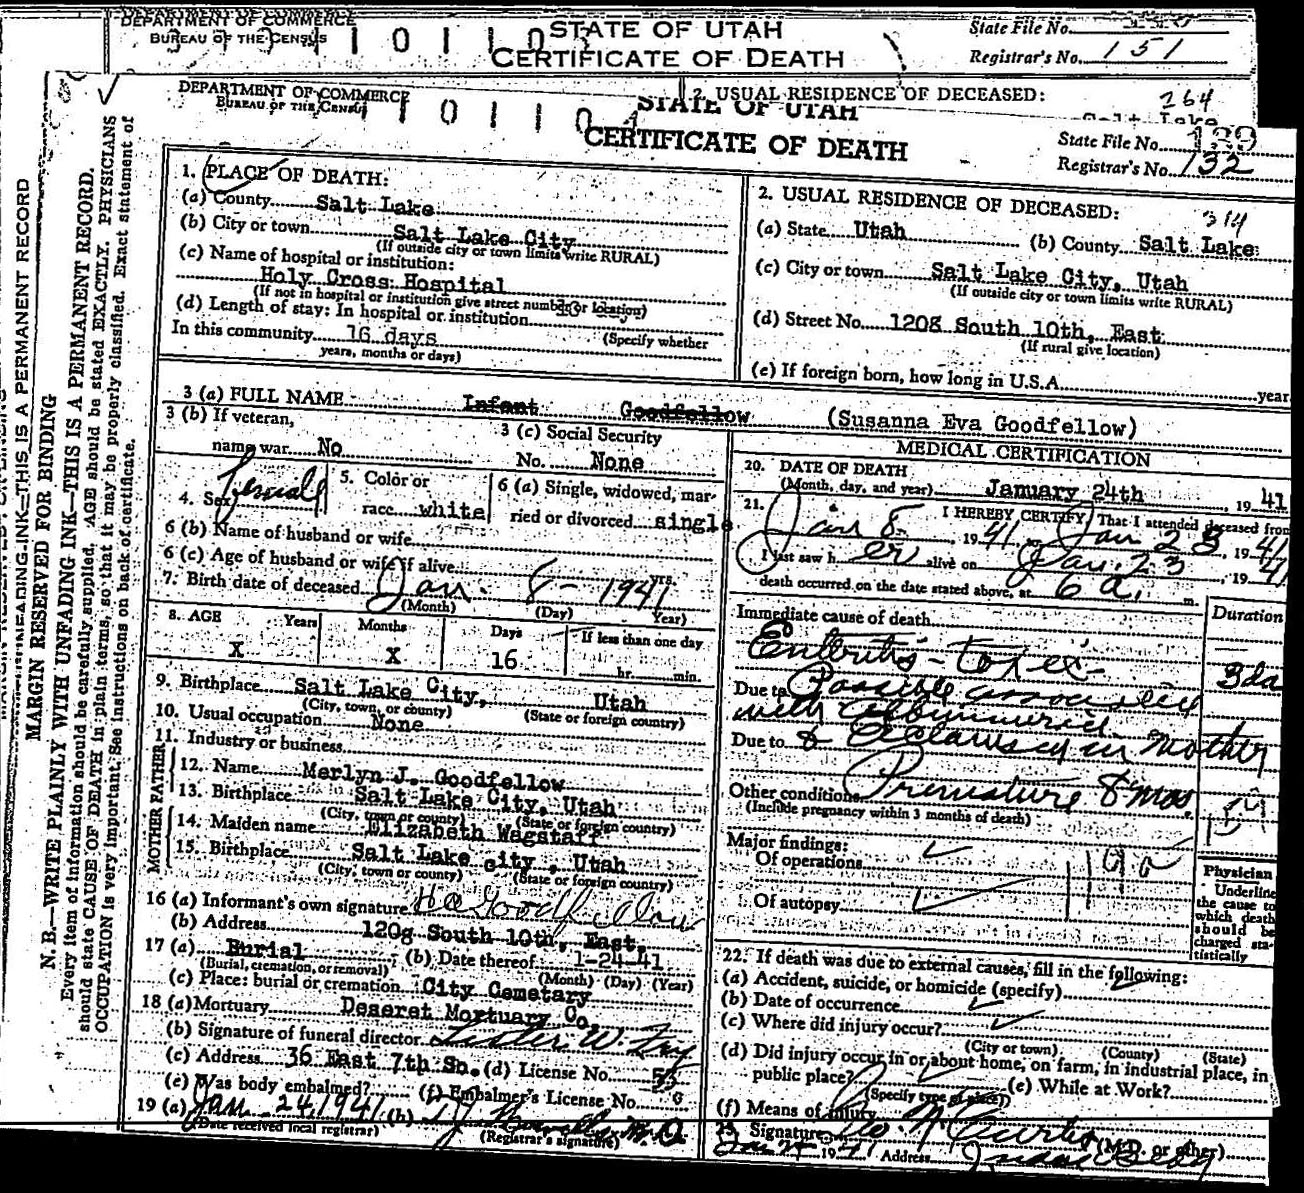 DEPARTMENT OF COMMERCE
BUREAU OF THE CENSUS
STATE OF UTAH
CERTIFICATE OF DEATH
State File No.
Registrar's No. 151
2. USUAL RESIDENCE OF DECEASED:
264
Salt Lake
DEPARTMENT OF COMMERCE
BUREAU OF THE CENSUS
STATE OF UTAH
CERTIFICATE OF DEATH
State File No. 139
Registrar's No. 132
MARGIN RESERVED FOR BINDING
N. B.—WRITE PLAINLY WITH UNFADING INK—THIS IS A PERMANENT RECORD.
Every item of information should be carefully supplied. AGE should be stated EXACTLY. PHYSICIANS
should state CAUSE OF DEATH in plain terms, so that it may be properly classified. Exact statement of
OCCUPATION is very important. See instructions on back of certificate.
1. PLACE OF DEATH:
(a) County Salt Lake
(b) City or town Salt Lake City
(If outside city or town limits write RURAL)
(c) Name of hospital or institution:
Holy Cross Hospital
(If not in hospital or institution give street number or location)
(d) Length of stay: In hospital or institution
In this community 16 days (Specify whether
years, months or days)
2. USUAL RESIDENCE OF DECEASED: 314
(a) State Utah (b) County Salt Lake
(c) City or town Salt Lake City, Utah
(If outside city or town limits write RURAL)
(d) Street No. 1208 South 10th, East
(If rural give location)
(e) If foreign born, how long in U.S.A. year
3 (a) FULL NAME Infant Goodfellow (Susanna Eva Goodfellow)
3 (b) If veteran,
name war No
3 (c) Social Security
No. None
4. Sex Female
5. Color or
race white
6 (a) Single, widowed, mar-
ried or divorced single
6 (b) Name of husband or wife
6 (c) Age of husband or wife if alive yrs.
7. Birth date of deceased Jan. 8 - 1941
(Month) (Day) Year)
8. AGE Years Months Days If less than one day
X X 16 hr. min.
9. Birthplace Salt Lake City, Utah
(City, town, or county) (State or foreign country)
10. Usual occupation None
11. Industry or business
FATHER
12. Name Merlyn J. Goodfellow
13. Birthplace Salt Lake City, Utah
(City, town or county) (State or foreign country)
MOTHER
14. Maiden name Elizabeth Wagstaff
15. Birthplace Salt Lake City, Utah
(City, town or county) (State or foreign country)
16 (a) Informant's own signature Goodfellow
(b) Address 1208 South 10th, East,
17 (a) Burial (b) Date thereof 1-24-41
(Burial, cremation, or removal) (Month) (Day) (Year)
(c) Place: burial or cremation City Cemetary
18 (a) Mortuary Deseret Mortuary Co.
(b) Signature of funeral director Lester W.
(c) Address 36 East 7th So. (d) License No. 55
(e) Was body embalmed? (f) Embalmer's License No.
19 (a) Jan. 24, 1941 (b) M.D.
(Date received local registrar) (Registrar's signature)
MEDICAL CERTIFICATION
20. DATE OF DEATH
(Month, day, and year) January 24th, 1941
21. I HEREBY CERTIFY, That I attended deceased from
Jan 8, 1941, to Jan 23, 1941
I last saw h er alive on Jan. 23, 1941
death occurred on the date stated above, at 6 a. m.
Immediate cause of death Duration
Enteritis - toxic - 3 da
Due to Possible associated
with Albuminuria
Due to & Eclampsy in Mother
Other conditions Premature 8 mos.
(Include pregnancy within 3 months of death)
Major findings:
Of operations
Of autopsy
Physician
Underline
the cause to
which death
should be
charged sta-
tistically
22. If death was due to external causes, fill in the following:
(a) Accident, suicide, or homicide (specify)
(b) Date of occurrence
(c) Where did injury occur?
(City or town) (County) (State)
(d) Did injury occur in or about home, on farm, in industrial place, in
public place? (Specify type of place) (e) While at Work?
(f) Means of injury
23. Signature Curtis (M.D. or other)
Jan 24 1941 Address Bldg